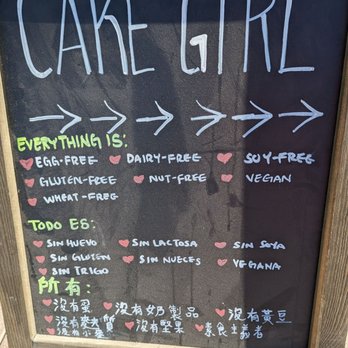 CAKE GIRL
EVERYTHING IS:
EGG-FREE DAIRY-FREE SOY-FREE
GLUTEN-FREE NUT-FREE VEGAN
WHEAT-FREE
TODO ES:
SIN HUEVO SIN LACTOSA SIN SOYA
SIN GLUTEN SIN NUECES VEGANA
SIN TRIGO
所有:
沒有蛋 沒有奶製品 沒有黃豆
沒有麥麩質 沒有堅果 素食主義者
沒有小麥